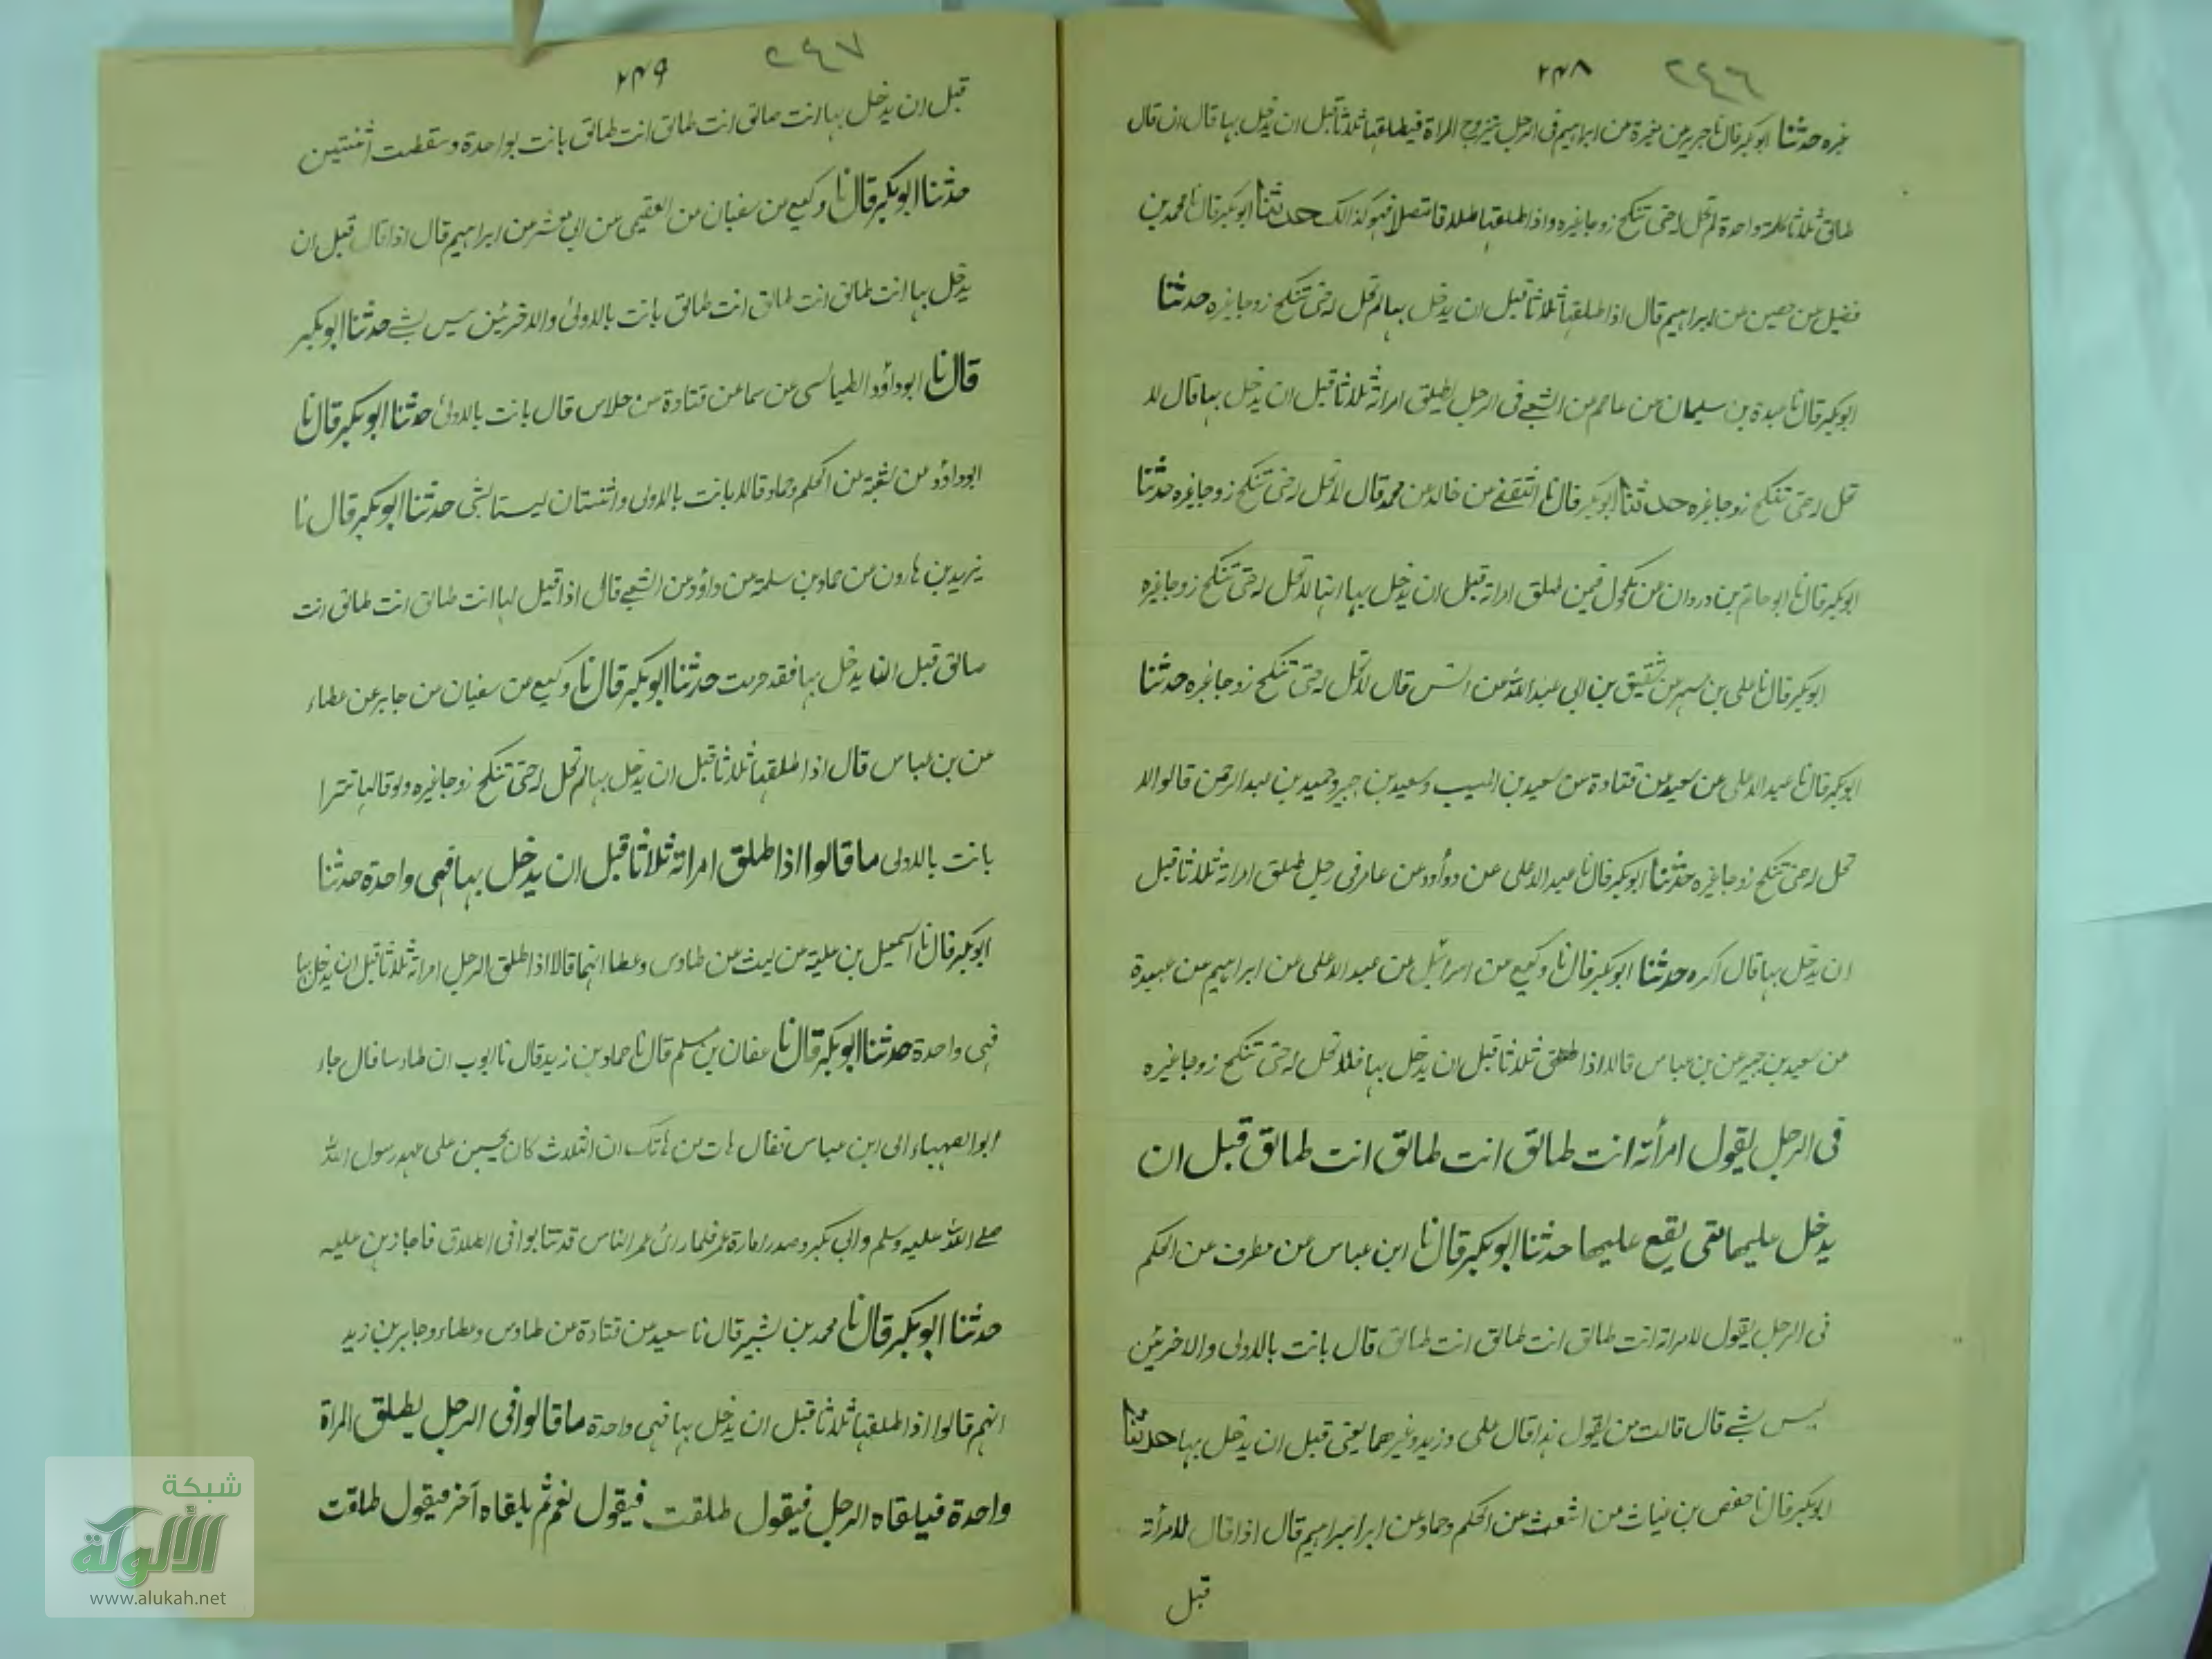 ٢٤٦ ٢٣٨
غيره حدثنا ابو بكر قال نا جرير عن مغيرة عن ابراهيم فى الرجل يتزوج المراة فيطلقها ثلاثا قبل ان يدخل بها قال ان قال
طالق ثلاثا كلمة واحدة لم تحل له حتى تنكح زوجا غيره واذا طلقها طلاقا متصلا فهو كذالك حدثنا ابو بكر قال نا محمد بن
فضيل عن حصين عن ابراهيم قال اذا طلقها ثلاثا قبل ان يدخل بها لم تحل له حتى تنكح زوجا غيره حدثنا
ابو بكر قال نا عبدة بن سليمان عن عاصم عن الشعبے فى الرجل يطلق امراته ثلاثا قبل ان يدخل بها قال لا
تحل له حتى تنكح زوجا غيره حدثنا ابو بكر قال نا الثقفے عن خالد عن محمد قال لا تحل له حتى تنكح زوجا غيره حدثنا
ابو بكر قال نا ابو حاتم بن دروان عن مكحول فيمن طلق امراته قبل ان يدخل بها انها لا تحل له حتى تنكح زوجا غيره
ابو بكر قال نا على بن مسهر عن شقيق بن ابى عبد الله عن انس قال لا تحل له حتى تنكح زوجا غيره حدثنا
ابو بكر قال نا عبد الاعلى عن سعيد عن قتادة عن سعيد بن المسيب وسعيد بن جبير وحميد بن عبد الرحمن قالوا لا
تحل له حتى تنكح زوجا غيره حدثنا ابو بكر قال نا عبد الاعلى عن دوأود عن عامر فى رجل طلق امراته ثلاثا قبل
ان يدخل بها قال اكره حدثنا ابو بكر قال نا وكيع عن اسرائيل عن عبد الاعلى عن ابراهيم عن عبيدة
عن سعيد بن جبير عن بن عباس قالا اذا طلق ثلاثا قبل ان يدخل بها فلا تحل له حتى تنكح زوجا غيره
فى الرجل يقول امرأته انت طالق انت طالق انت طالق قبل ان
يدخل عليها متى يقع عليها حدثنا ابو بكر قال نا ابن عباس عن مطرف عن الحكم
فى الرجل يقول لامراته انت طالق انت طالق انت طالق قال بانت بالاولى والاخريين
ليس بشے قال قالت من يقول هذا قال على وزيد وغيرهما يعنى قبل ان يدخل بها حدثنا
ابو بكر قال نا حفص بن غياث عن اشعث عن الحكم وحماد عن ابرابراهيم قال اذا قال لامرأته
قبل
٢٤٧ ٢٣٩
قبل ان يدخل بها انت طالق انت طالق انت طالق بانت بواحدة وسقطت اثنتين
حدثنا ابو بكر قال نا وكيع عن سفيان عن الفقيمى عن ابى معشر عن ابراهيم قال اذا قال قبل ان
يدخل بها انت طالق انت طالق انت طالق بانت بالاولىٰ والاخريين ليس بشے حدثنا ابو بكر
قال نا ابو داؤد الطيالسى عن سماعن قتادة عن خلاس قال بانت بالاولىٰ حدثنا ابو بكر قال نا
ابو داؤد عن شعبة عن الحكم وحماد قالا بانت بالاولى واثنتان ليستا بشى حدثنا ابو بكر قال نا
يزيد بن هارون عن حماد بن سلمة عن داؤد عن الشعبے قال اذا قيل لها انت طالق انت طالق انت
طالق قبل ان يدخل بها فقد حرمت حدثنا ابو بكر قال نا وكيع عن سفيان عن جابر عن عطاء
عن بن عباس قال اذا طلقها ثلاثا قبل ان يدخل بها لم تحل له حتى تنكح زوجا غيره ولو قالها تترا
بانت بالاولى ما قالوا اذا طلق امراته ثلاثا قبل ان يدخل بها فهى واحدة حدثنا
ابو بكر قال نا اسمعيل بن علية عن ليث عن طاوس وعطا انهما قالا اذا طلق الرجل امراته ثلاثا قبل ان يدخل بها
فهى واحدة حدثنا ابو بكر قال نا عفان بن مسلم قال نا حماد بن زيد قال نا ايوب ان طاوسا قال جاء
ابو الصهباء الى ابن عباس فقال هات من هناتك ان الثلاث كان يحسبن على عهد رسول الله
صلے الله عليه وسلم وابى بكر وصدر امارة عمر فلما رائ عمر الناس قد تتابوا فى الطلاق فاجازهن عليه
حدثنا ابو بكر قال نا محمد بن بشير قال نا سعيد عن قتادة عن طاوس وعطاء وجابر بن زيد
انهم قالوا اذا طلقها ثلاثا قبل ان يدخل بها فهى واحدة ما قالوا فى الرجل يطلق المراة
واحدة فيلقاه الرجل فيقول طلقت فيقول نعم ثم يلقاه آخر فيقول طلقت
شبكة
الألوكة
www.alukah.net